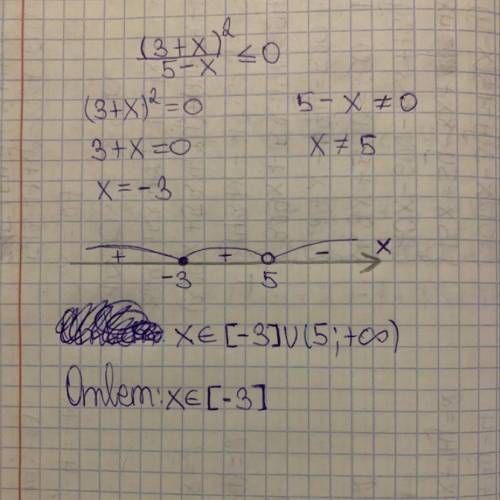 (3+x)² / 5-x ≤ 0
(3+x)² = 0    5-x ≠ 0
3+x = 0    x ≠ 5
x = -3
+ + - x
-3 5
x ∈ [-3] ∪ (5; +∞)
Ответ: x ∈ [-3]